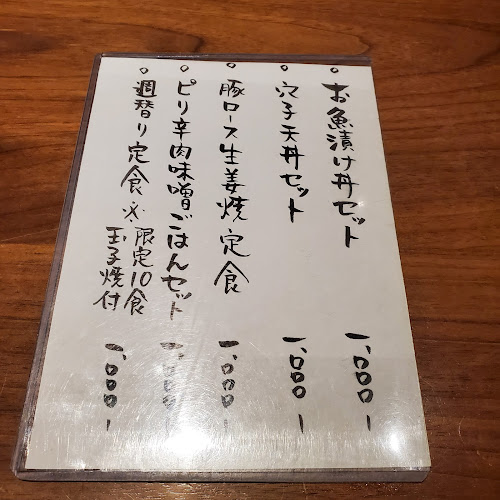 。お魚漬け丼セット 一、〇〇〇ー
。穴子天丼セット 一、〇〇〇ー
。豚ロース生姜焼定食 一、〇〇〇ー
。ピリ辛肉味噌ごはんセット 一、〇〇〇ー
。週替り定食 ※限定10食
玉子焼付 一、〇〇〇ー